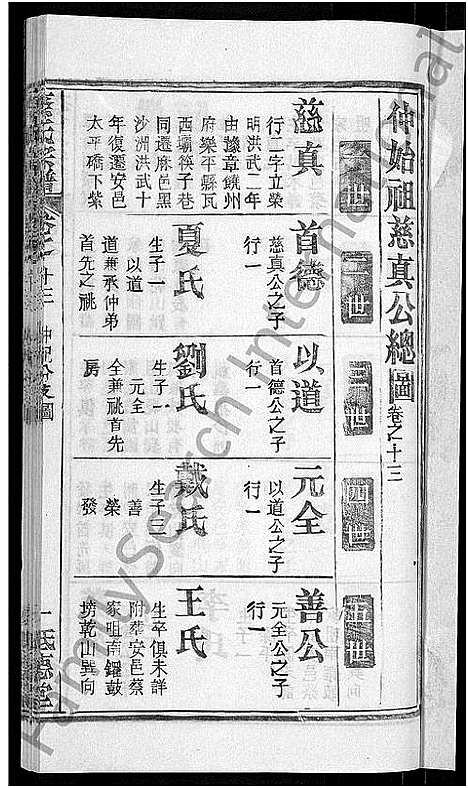 仲始祖慈真公總圖 卷之十三
壹世
二世
三世
四世
五世
慈真
行二字立榮
明洪武二年
由豫章饒州
府樂平縣瓦
西壩筷子巷
同遷麻邑黑
沙洲洪武十
年復遷安邑
太平磱下紫
首德
慈真公之子
行一
夏氏
生子一
以道
道兼承仲弟
首先之祧
以道
首德公之子
行一
劉氏
生子一
元全
全兼祧首先
房
元全
以道公之子
行一
戴氏
生子三
善
榮
發
善公
元全公之子
行一
王氏
生卒俱未詳
附葬安邑蔡
家咀南鑼鼓
塝乾山巽向
卷之十三 仲祀分支圖
FamilySearch International